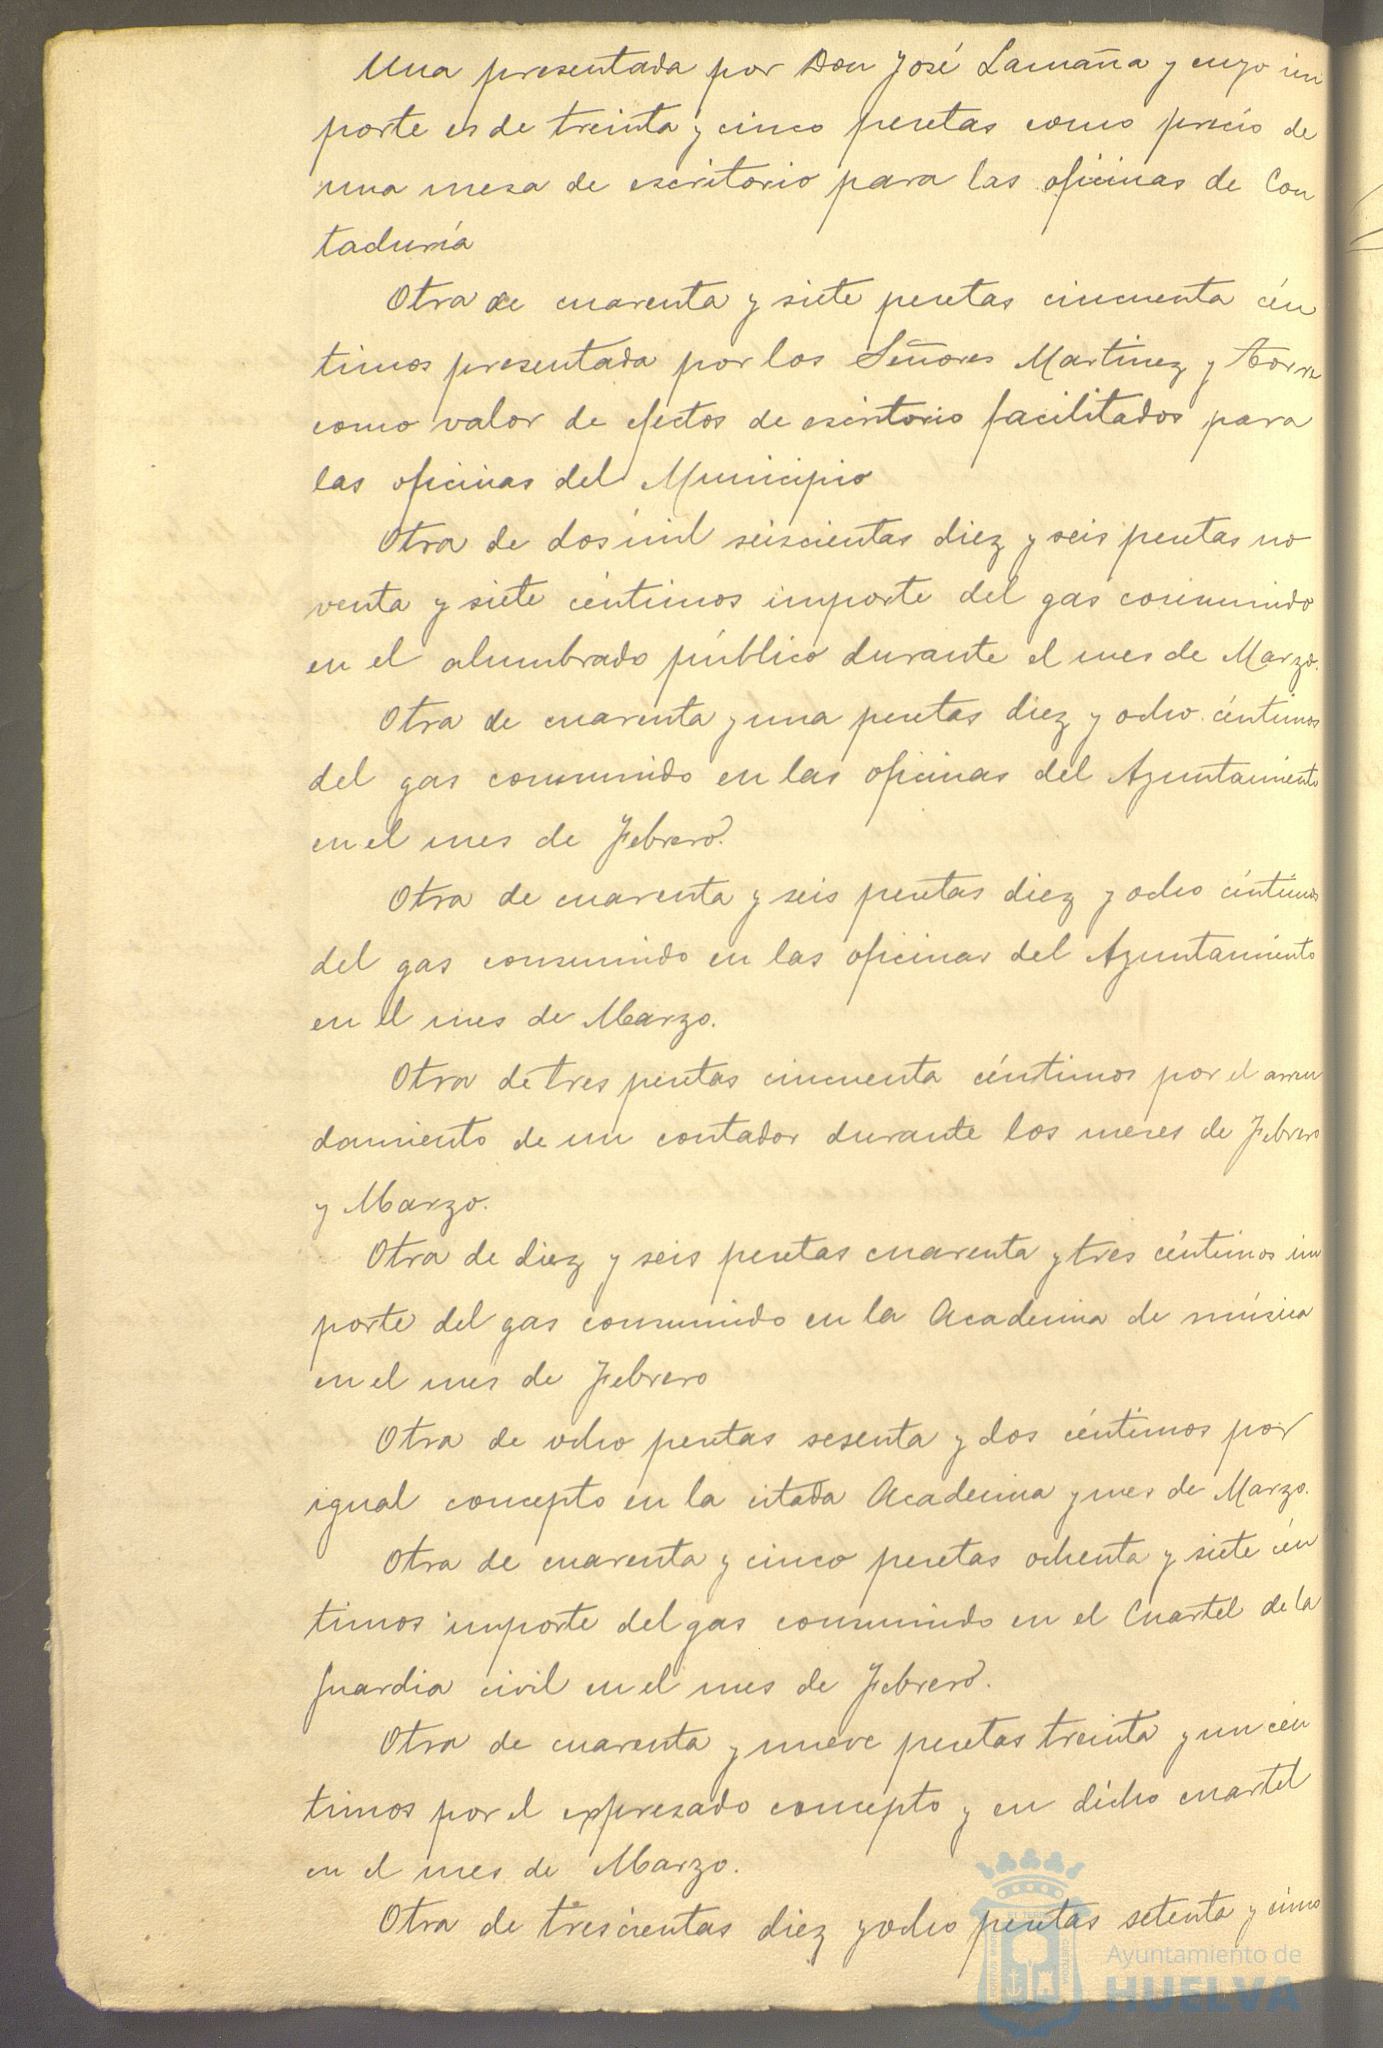 Una presentada por Don José Lamaña y cuyo im
porte es de treinta y cinco pesetas como precio de
una mesa de escritorio para las oficinas de Con
taduría
Otra de cuarenta y siete pesetas cincuenta cén
timos presentada por los Señores Martinez y Torre
como valor de efectos de escritorio facilitados para
las oficinas del Municipio
Otra de dos mil seiscientas diez y seis pesetas no
venta y siete céntimos importe del gas consumido
en el alumbrado público durante el mes de Marzo.
Otra de cuarenta y una pesetas diez y ocho céntimos
del gas consumido en las oficinas del Ayuntamiento
en el mes de Febrero.
Otra de cuarenta y seis pesetas diez y ocho céntimos
del gas consumido en las oficinas del Ayuntamiento
en el mes de Marzo.
Otra de tres pesetas cincuenta céntimos por el arren
damiento de un contador durante los meses de Febrero
y Marzo.
Otra de diez y seis pesetas cuarenta y tres céntimos im
porte del gas consumido en la Academia de música
en el mes de Febrero
Otra de ocho pesetas sesenta y dos céntimos por
igual concepto en la citada Academia y mes de Marzo.
Otra de cuarenta y cinco pesetas ochenta y siete cén
timos importe del gas consumido en el Cuartel de la
guardia civil en el mes de Febrero.
Otra de cuarenta y nueve pesetas treinta y un cén
timos por el expresado concepto y en dicho cuartel
en el mes de Marzo.
Otra de trescientas diez y ocho pesetas setenta y cinco
Ayuntamiento de
HUELVA